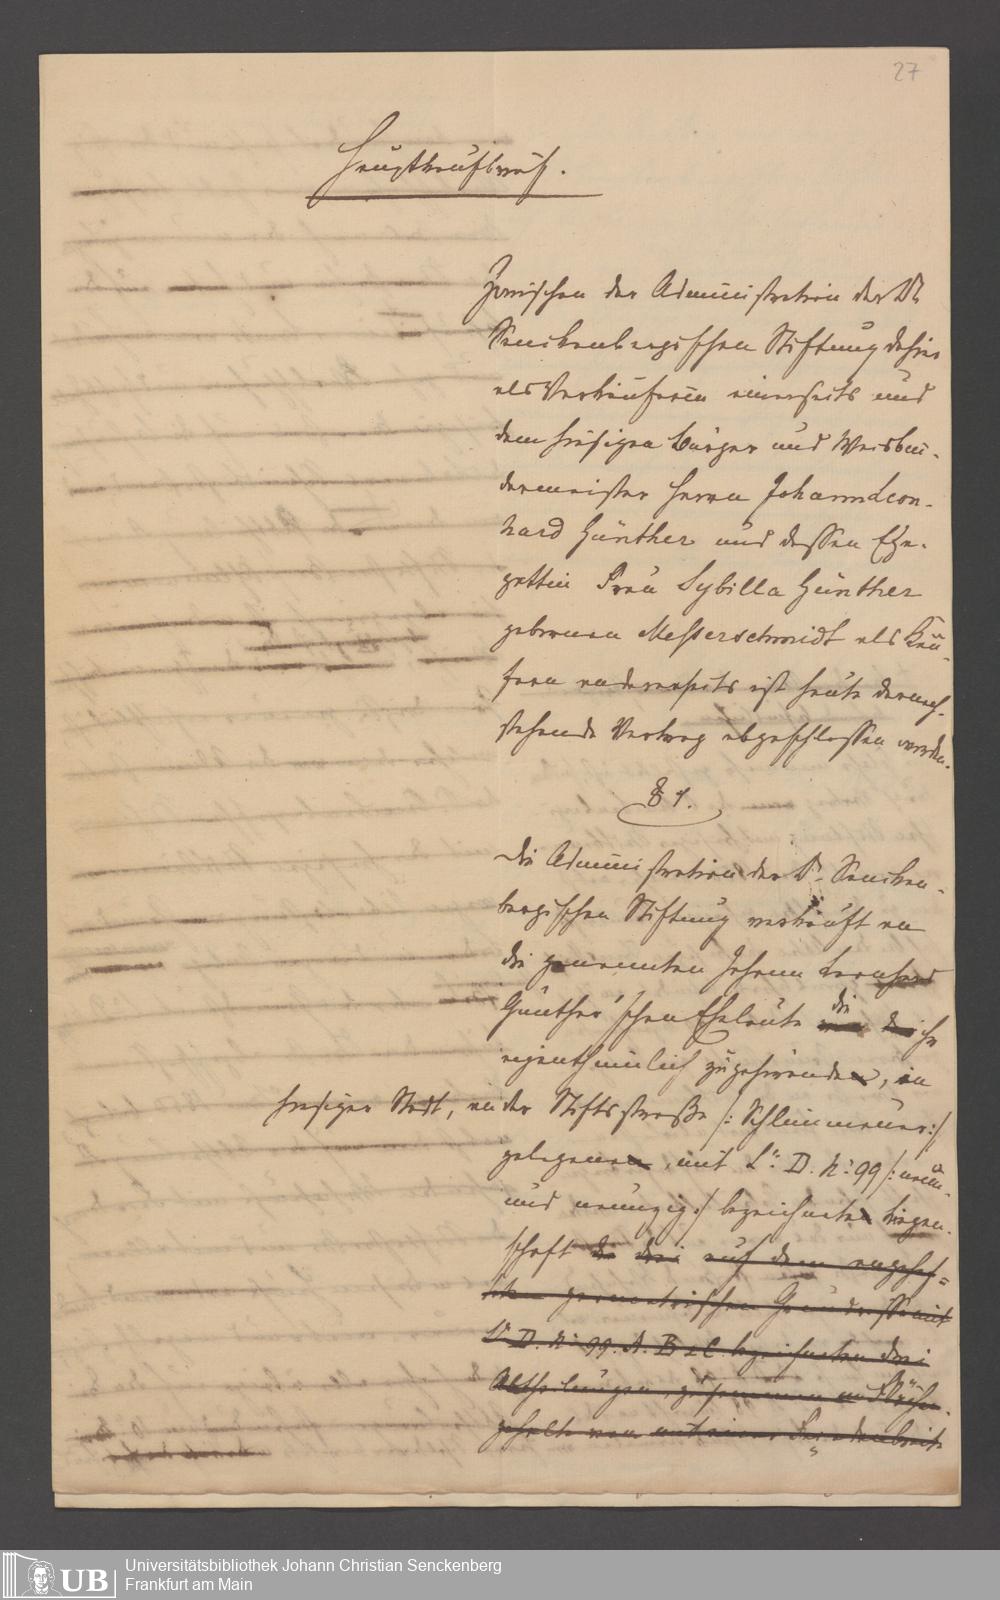 27
Hauptkaufbrief.
Zwischen der Administration der Dr
Senckenbergischen Stiftung dahier
als Verkäuferin einerseits und
dem hiesigen Bürger und Weisbin-
dermeister Herrn Johann Leon-
hard Günther und dessen Ehe-
gattin Frau Sybilla Günther
geborenen Messerschmidt als Käu-
fern andererseits ist heute darnach-
stehende Vertrag abgeschlossen worden.
§ 1.
Die Administration der Dr. Sencken-
bergischen Stiftung verkauft an
die genannten Johann Leonhard
Günther'schen Eheleute die ihr
eigenthümlich zugehörende, in
hiesiger Stadt, an der Stiftsstraße /: Schlimmauer :/
gelegene, mit Lit. D. No 99 /: neun-
und neunzig :/ bezeichnete Liegen-
schaft die drei auf dem angehef-
teten geometrischen Grundriss mit
Lit D. No 99. A. B & C. bezeichneten drei
Abtheilungen, zusammen an Flächen-
gehalt von mit einer Fa denbreite
Universitätsbibliothek Johann Christian Senckenberg
Frankfurt am Main
UB